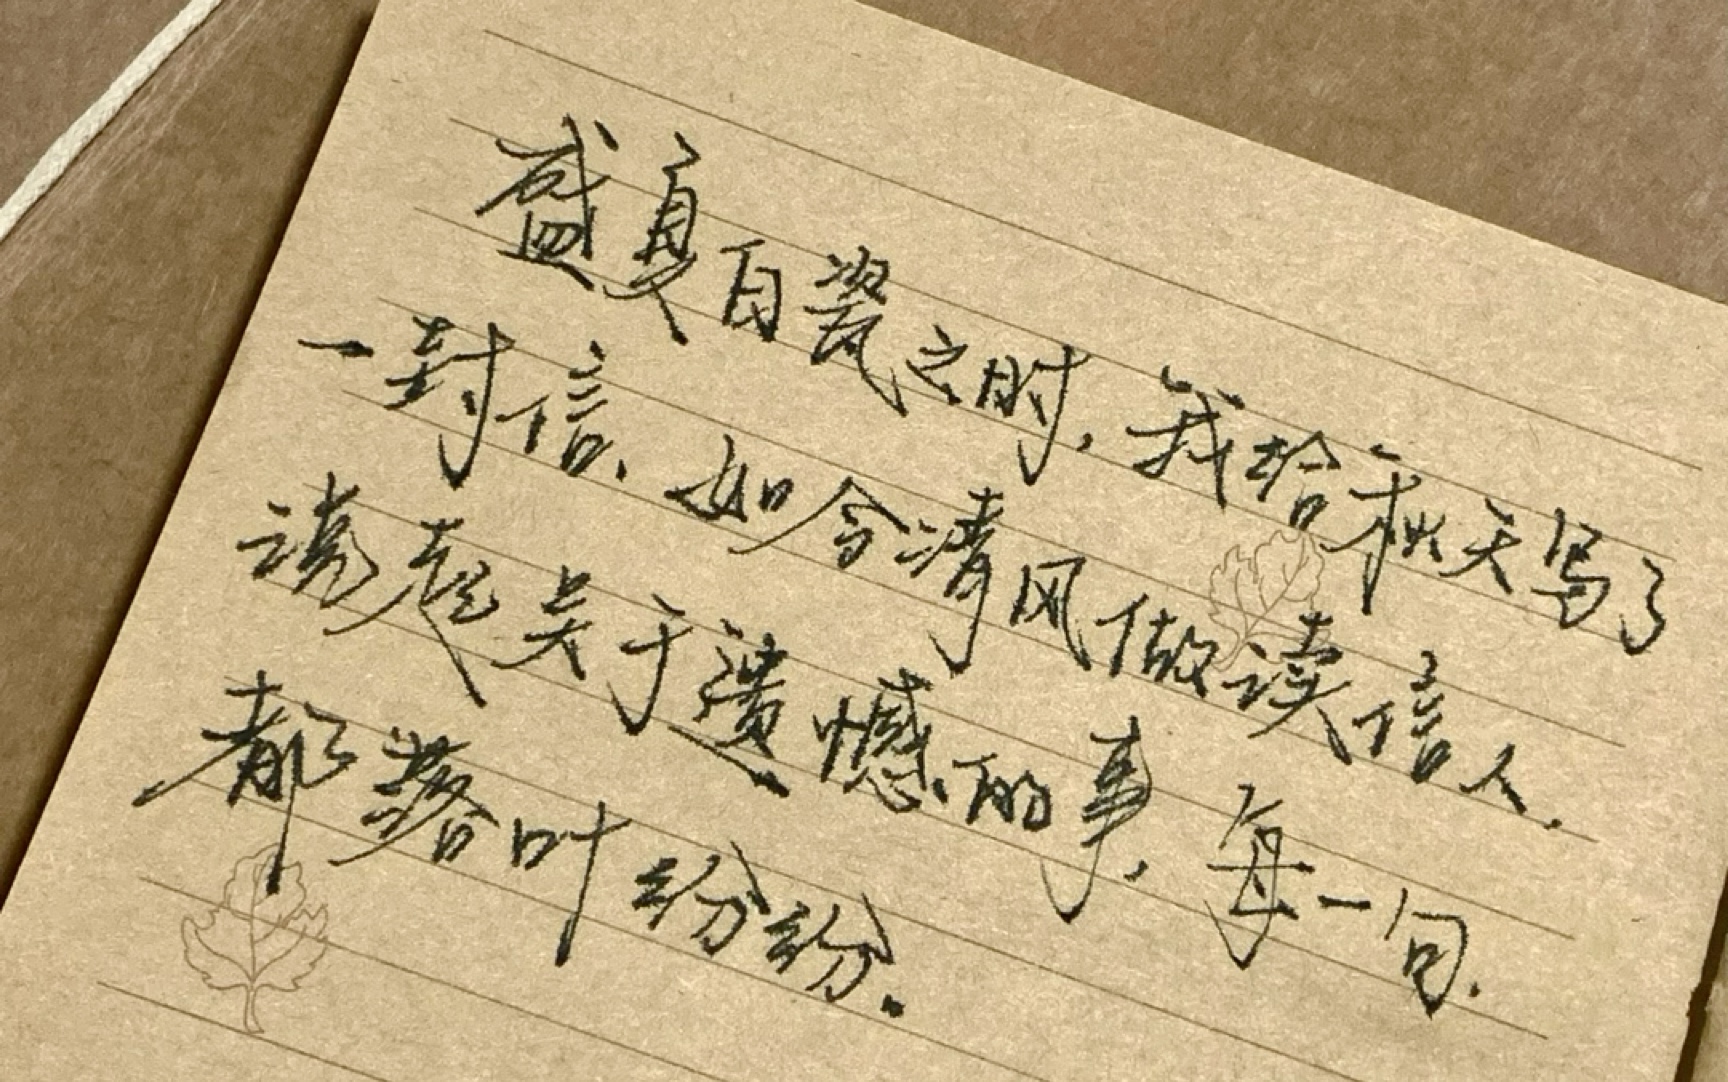 盛夏自溺之时，我给秋天写了
一封信、如今清风做读信人.
谈起关于遗憾的事，每一句.
都落叶纷纷.